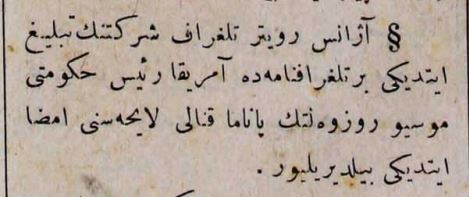 § آژانس رویتر تلغراف شركتنك تبلیغ
ایتدیكی بر تلغرافنامه‌ده آمریقا رئیس حكومتی
موسیو روزوه‌لتك پاناما قنالی لایحه‌سنی امضا
ایتدیكی بیلدیریلیور .